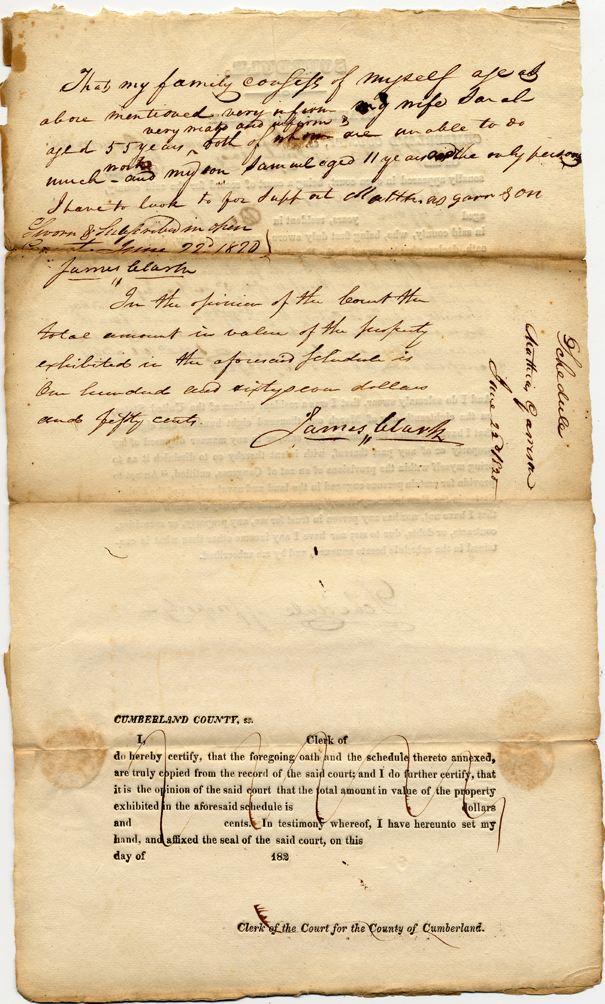 That my family consists of myself aged as
above mentioned very infirm & my wife Sarah
aged 55 years very and infirm both of whom are unable to do
much work and my son Samuel aged 11 years is the only person
I have to look to for Support Matthias garrison
Sworn & Subscribed in open
Court June 22d 1820
James Clark
In the opinion of the Court the
total amount in value of the property
exhibited in the aforesaid Schedule is
One hundred and dollars
and fifty cents.
James Clark
Schedule
Mathias Garrison
June 22d 1820
CUMBERLAND COUNTY, ss.
I, Clerk of
do hereby certify, that the foregoing oath and the schedule thereto annexed,
are truly copied from the record of the said court; and I do further certify, that
it is the opinion of the said court that the total amount in value of the property
exhibited in the aforesaid schedule is dollars
and cents. In testimony whereof, I have hereunto set my
hand, and affixed the seal of the said court, on this
day of 182
Clerk of the Court for the County of Cumberland.